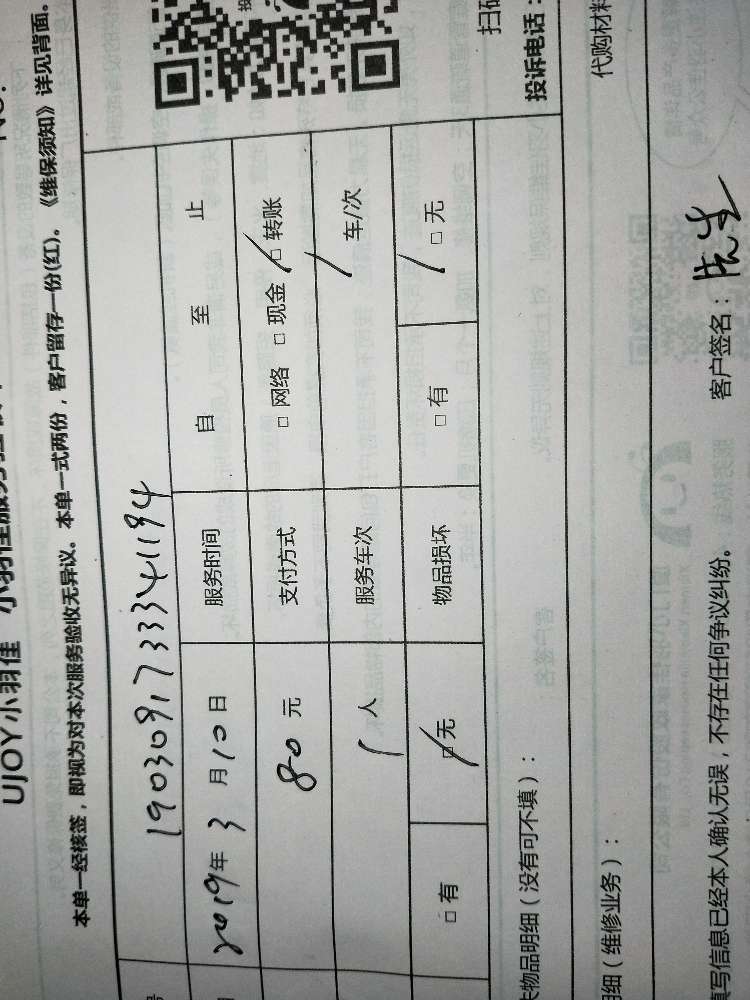 UJOY小羽佳
本单一经核签，即视为对本次服务验收无异议。本单一式两份，客户留存一份(红)。《维保须知》详见背面。
号 1903091733341194
2019年3月10日 服务时间 自 至 止
80元 支付方式 □网络 □现金 □转账
1人 服务车次 1车/次
□有 □无 物品损坏 □有 □无
扫码
投诉电话：
物品明细（没有可不填）：
代购材料
细（维修业务）：
填写信息已经本人确认无误，不存在任何争议纠纷。 客户签名：